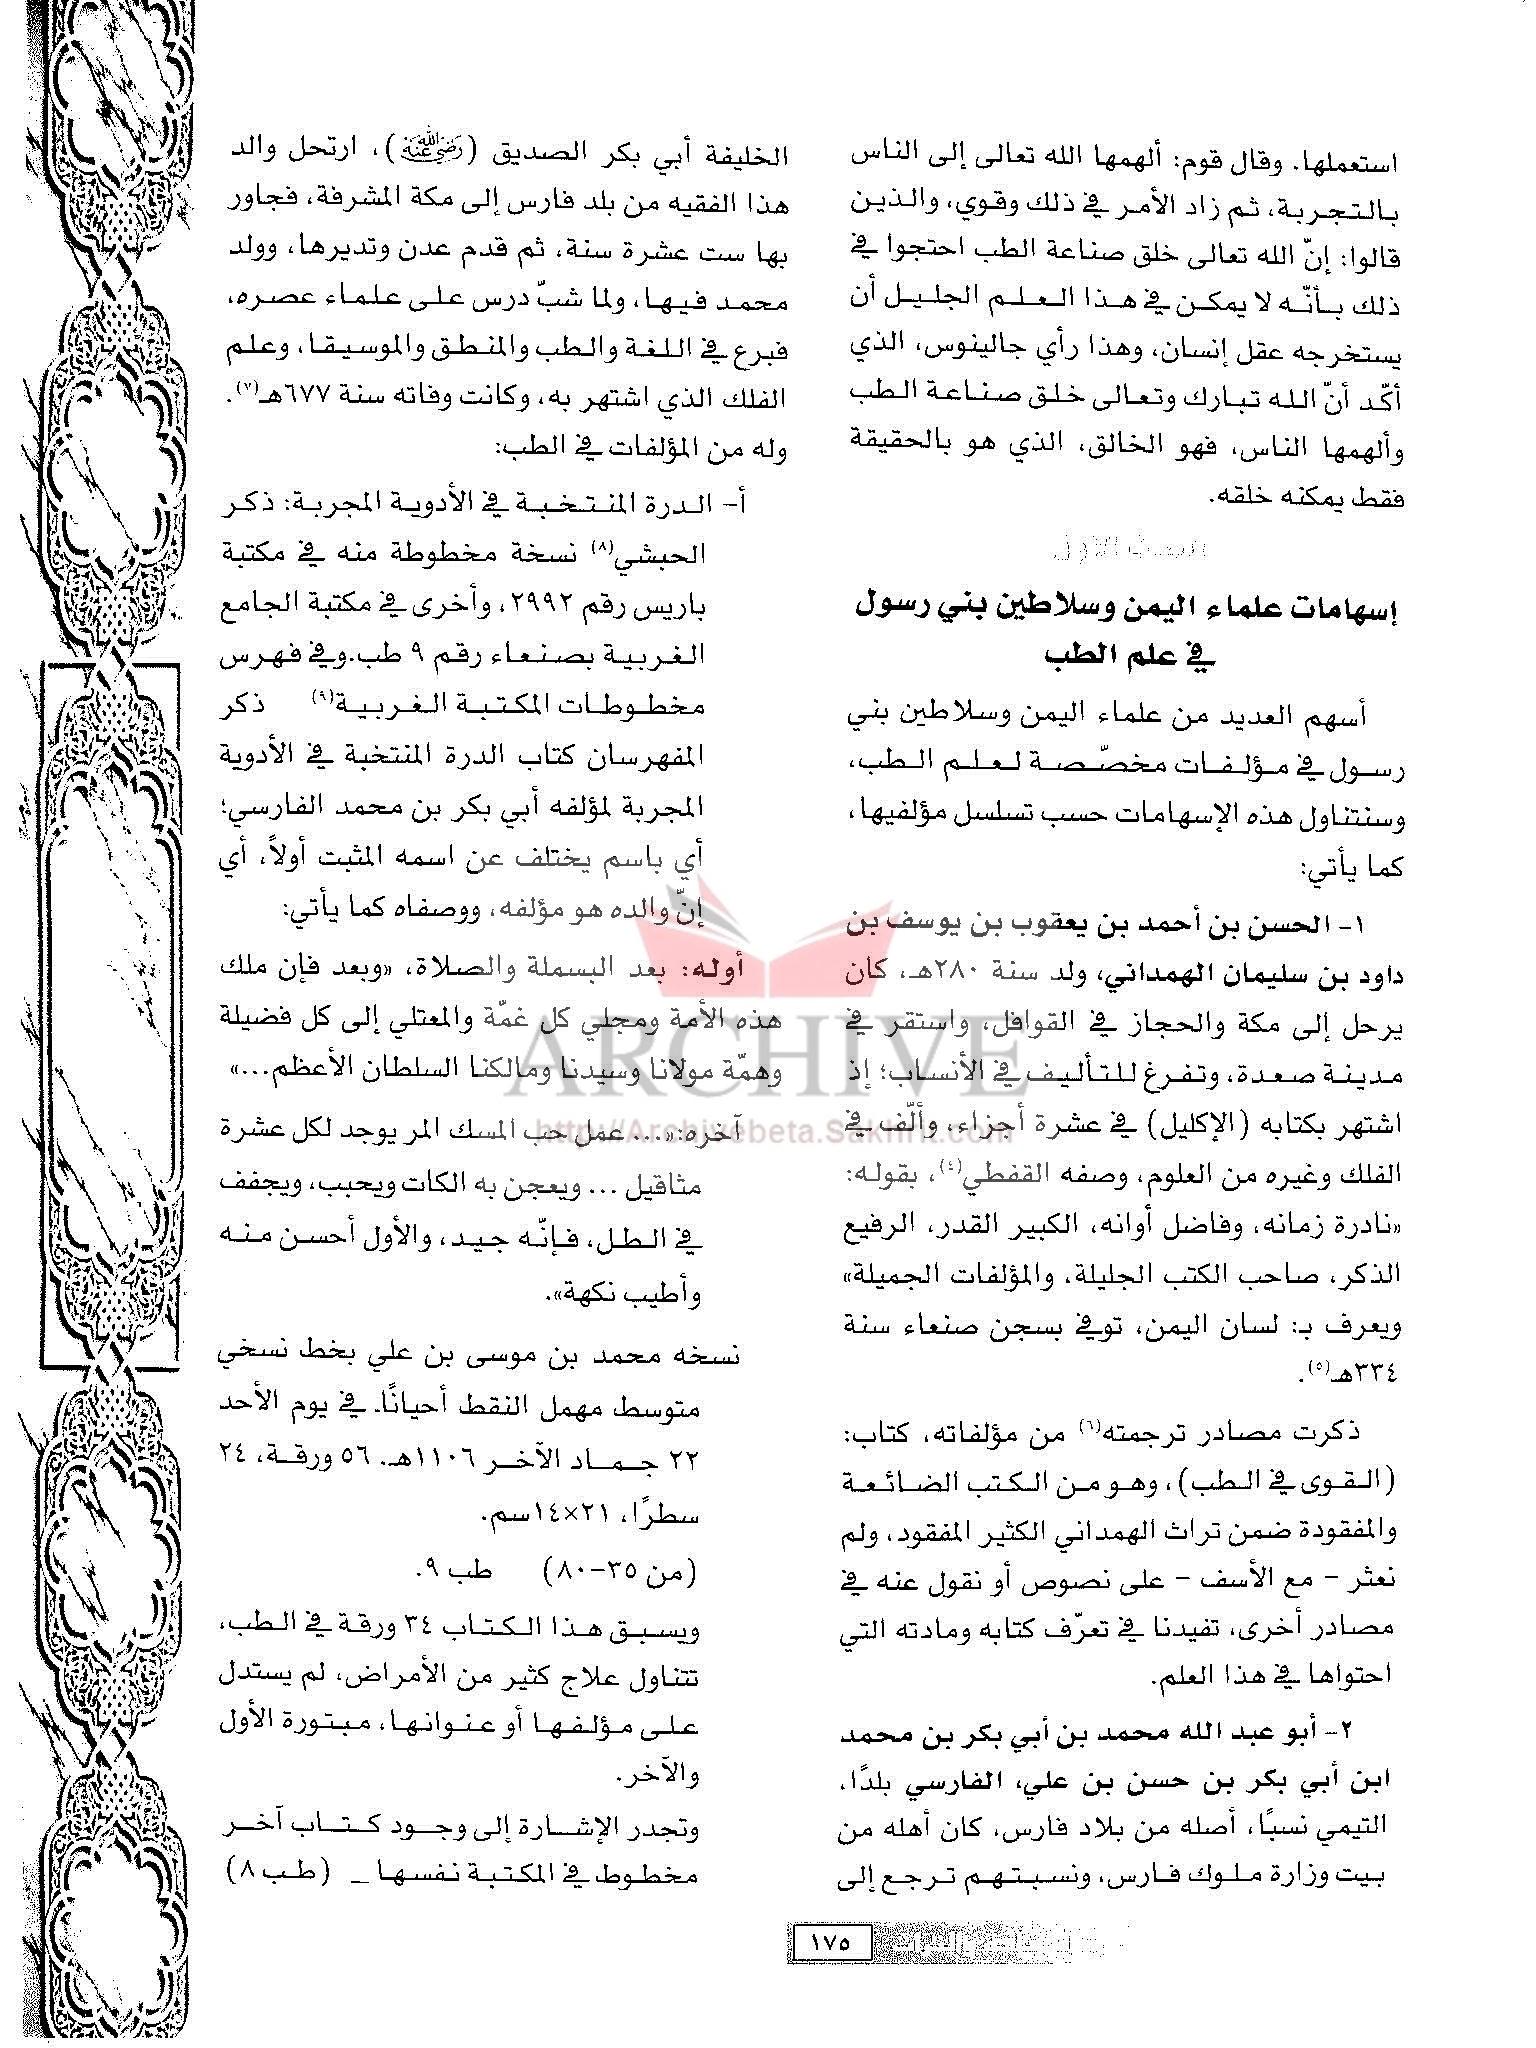 استعملها. وقال قوم: ألهمها الله تعالى إلى الناس
بالتجربة، ثم زاد الأمر في ذلك وقوي، والذين
قالوا: إنّ الله تعالى خلق صناعة الطب احتجوا في
ذلك بأنّه لا يمكن في هذا العلم الجليل أن
يستخرجه عقل إنسان، وهذا رأي جالينوس، الذي
أكّد أنّ الله تبارك وتعالى خلق صناعة الطب
وألهمها الناس، فهو الخالق، الذي هو بالحقيقة
فقط يمكنه خلقه.
المبحث الأول
إسهامات علماء اليمن وسلاطين بني رسول
في علم الطب
أسهم العديد من علماء اليمن وسلاطين بني
رسول في مؤلفات مخصّصة لعلم الطب،
وسنتناول هذه الإسهامات حسب تسلسل مؤلفيها،
كما يأتي:
١- الحسن بن أحمد بن يعقوب بن يوسف بن
داود بن سليمان الهمداني، ولد سنة ٢٨٠هـ، كان
يرحل إلى مكة والحجاز في القوافل، واستقر في
مدينة صعدة، وتفرغ للتأليف في الأنساب؛ إذ
اشتهر بكتابه (الإكليل) في عشرة أجزاء، وألّف في
الفلك وغيره من العلوم، وصفه القفطي(٤)، بقوله:
«نادرة زمانه، وفاضل أوانه، الكبير القدر، الرفيع
الذكر، صاحب الكتب الجليلة، والمؤلفات الجميلة»
ويعرف بـ: لسان اليمن، توفي بسجن صنعاء سنة
٣٣٤هـ(٥).
ذكرت مصادر ترجمته(٦) من مؤلفاته، كتاب:
(القوى في الطب)، وهو من الكتب الضائعة
والمفقودة ضمن تراث الهمداني الكثير المفقود، ولم
نعثر - مع الأسف - على نصوص أو نقول عنه في
مصادر أخرى، تفيدنا في تعرّف كتابه ومادته التي
احتواها في هذا العلم.
٢- أبو عبد الله محمد بن أبي بكر بن محمد
ابن أبي بكر بن حسن بن علي، الفارسي بلدًا،
التيمي نسبًا، أصله من بلاد فارس، كان أهله من
بيت وزارة ملوك فارس، ونسبتهم ترجع إلى
الخليفة أبي بكر الصديق (رضي الله عنه)، ارتحل والد
هذا الفقيه من بلد فارس إلى مكة المشرفة، فجاور
بها ست عشرة سنة، ثم قدم عدن وتديرها، وولد
محمد فيها، ولما شبّ درس على علماء عصره،
فبرع في اللغة والطب والمنطق والموسيقا، وعلم
الفلك الذي اشتهر به، وكانت وفاته سنة ٦٧٧هـ(٧).
وله من المؤلفات في الطب:
أ- الدرة المنتخبة في الأدوية المجربة: ذكر
الحبشي(٨) نسخة مخطوطة منه في مكتبة
باريس رقم ٢٩٩٢، وأخرى في مكتبة الجامع
الغربية بصنعاء رقم ٩ طب.وفي فهرس
مخطوطات المكتبة الغربية(٩) ذكر
المفهرسان كتاب الدرة المنتخبة في الأدوية
المجربة لمؤلفه أبي بكر بن محمد الفارسي؛
أي باسم يختلف عن اسمه المثبت أولاً، أي
إنّ والده هو مؤلفه، ووصفاه كما يأتي:
أوله: بعد البسملة والصلاة، «وبعد فإن ملك
هذه الأمة ومجلي كل غمّة والمعتلي إلى كل فضيلة
وهمّة مولانا وسيدنا ومالكنا السلطان الأعظم...»
آخره:«... عمل حب المسك المر يوجد لكل عشرة
مثاقيل ... ويعجن به الكات ويحبب، ويجفف
في الطل، فإنّه جيد، والأول أحسن منه
وأطيب نكهة».
نسخه محمد بن موسى بن علي بخط نسخي
متوسط مهمل النقط أحيانًا. في يوم الأحد
٢٢ جماد الآخر ١١٠٦هـ. ٥٦ ورقة، ٢٤
سطرًا، ٢١×١٤سم.
(من ٣٥-٨٠) طب ٩.
ويسبق هذا الكتاب ٣٤ ورقة في الطب،
تتناول علاج كثير من الأمراض، لم يستدل
على مؤلفها أو عنوانها، مبتورة الأول
والآخر.
وتجدر الإشارة إلى وجود كتاب آخر
مخطوط في المكتبة نفسها _ (طب ٨)
ARCHIVE
http://Archivebeta.Sakhrit.com
١٧٥